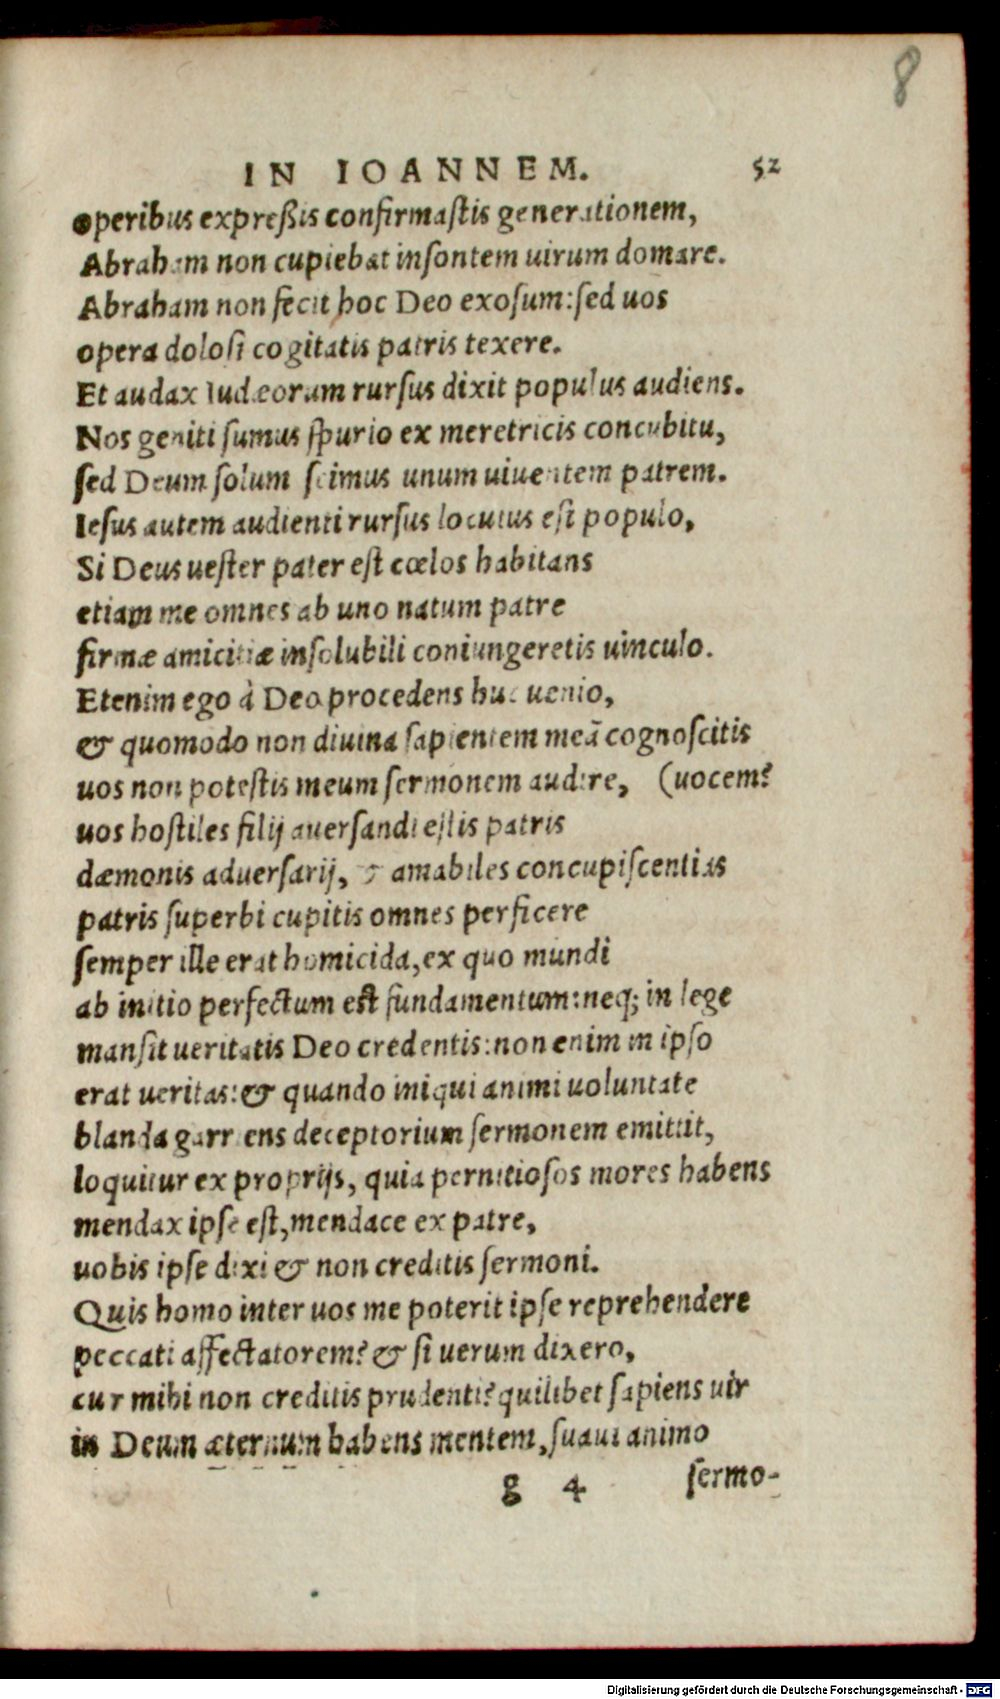 8
IN IOANNEM. 52
operibus expreßis confirmaſtis generationem,
Abraham non cupiebat inſontem uirum domare.
Abraham non fecit hoc Deo exoſum: ſed uos
opera doloſi cogitatis patris texere.
Et audax Iudæorum rurſus dixit populus audiens.
Nos geniti ſumus ſpurio ex meretricis concubitu,
ſed Deum ſolum ſcimus unum uiuentem patrem.
Ieſus autem audienti rurſus locutus eſt populo,
Si Deus ueſter pater eſt cœlos habitans
etiam me omnes ab uno natum patre
firmæ amicitiæ inſolubili coniungeretis uinculo.
Etenim ego à Deo procedens huc uenio,
& quomodo non diuina ſapientem meã cognoſcitis
uos non poteſtis meum ſermonem audire, (uocem?
uos hoſtiles filij auerſandi eſtis patris
dæmonis aduerſarij, & amabiles concupiſcentias
patris ſuperbi cupitis omnes perficere
ſemper ille erat homicida, ex quo mundi
ab initio perfectum eſt fundamentum: neq; in lege
manſit ueritatis Deo credentis: non enim in ipſo
erat ueritas: & quando iniqui animi uoluntate
blanda garriens deceptorium ſermonem emittit,
loquitur ex proprijs, quia pernitioſos mores habens
mendax ipſe eſt, mendace ex patre,
uobis ipſe dixi & non creditis ſermoni.
Quis homo inter uos me poterit ipſe reprehendere
peccati affectatorem? & ſi uerum dixero,
cur mihi non creditis prudenti? quilibet ſapiens uir
in Deum æternum habens mentem, ſuaui animo
g 4 ſermo-
Digitalisierung gefördert durch die Deutsche Forschungsgemeinschaft - DFG